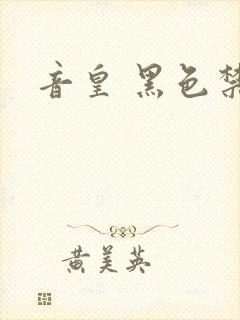 音皇 黑色禁
黄美英